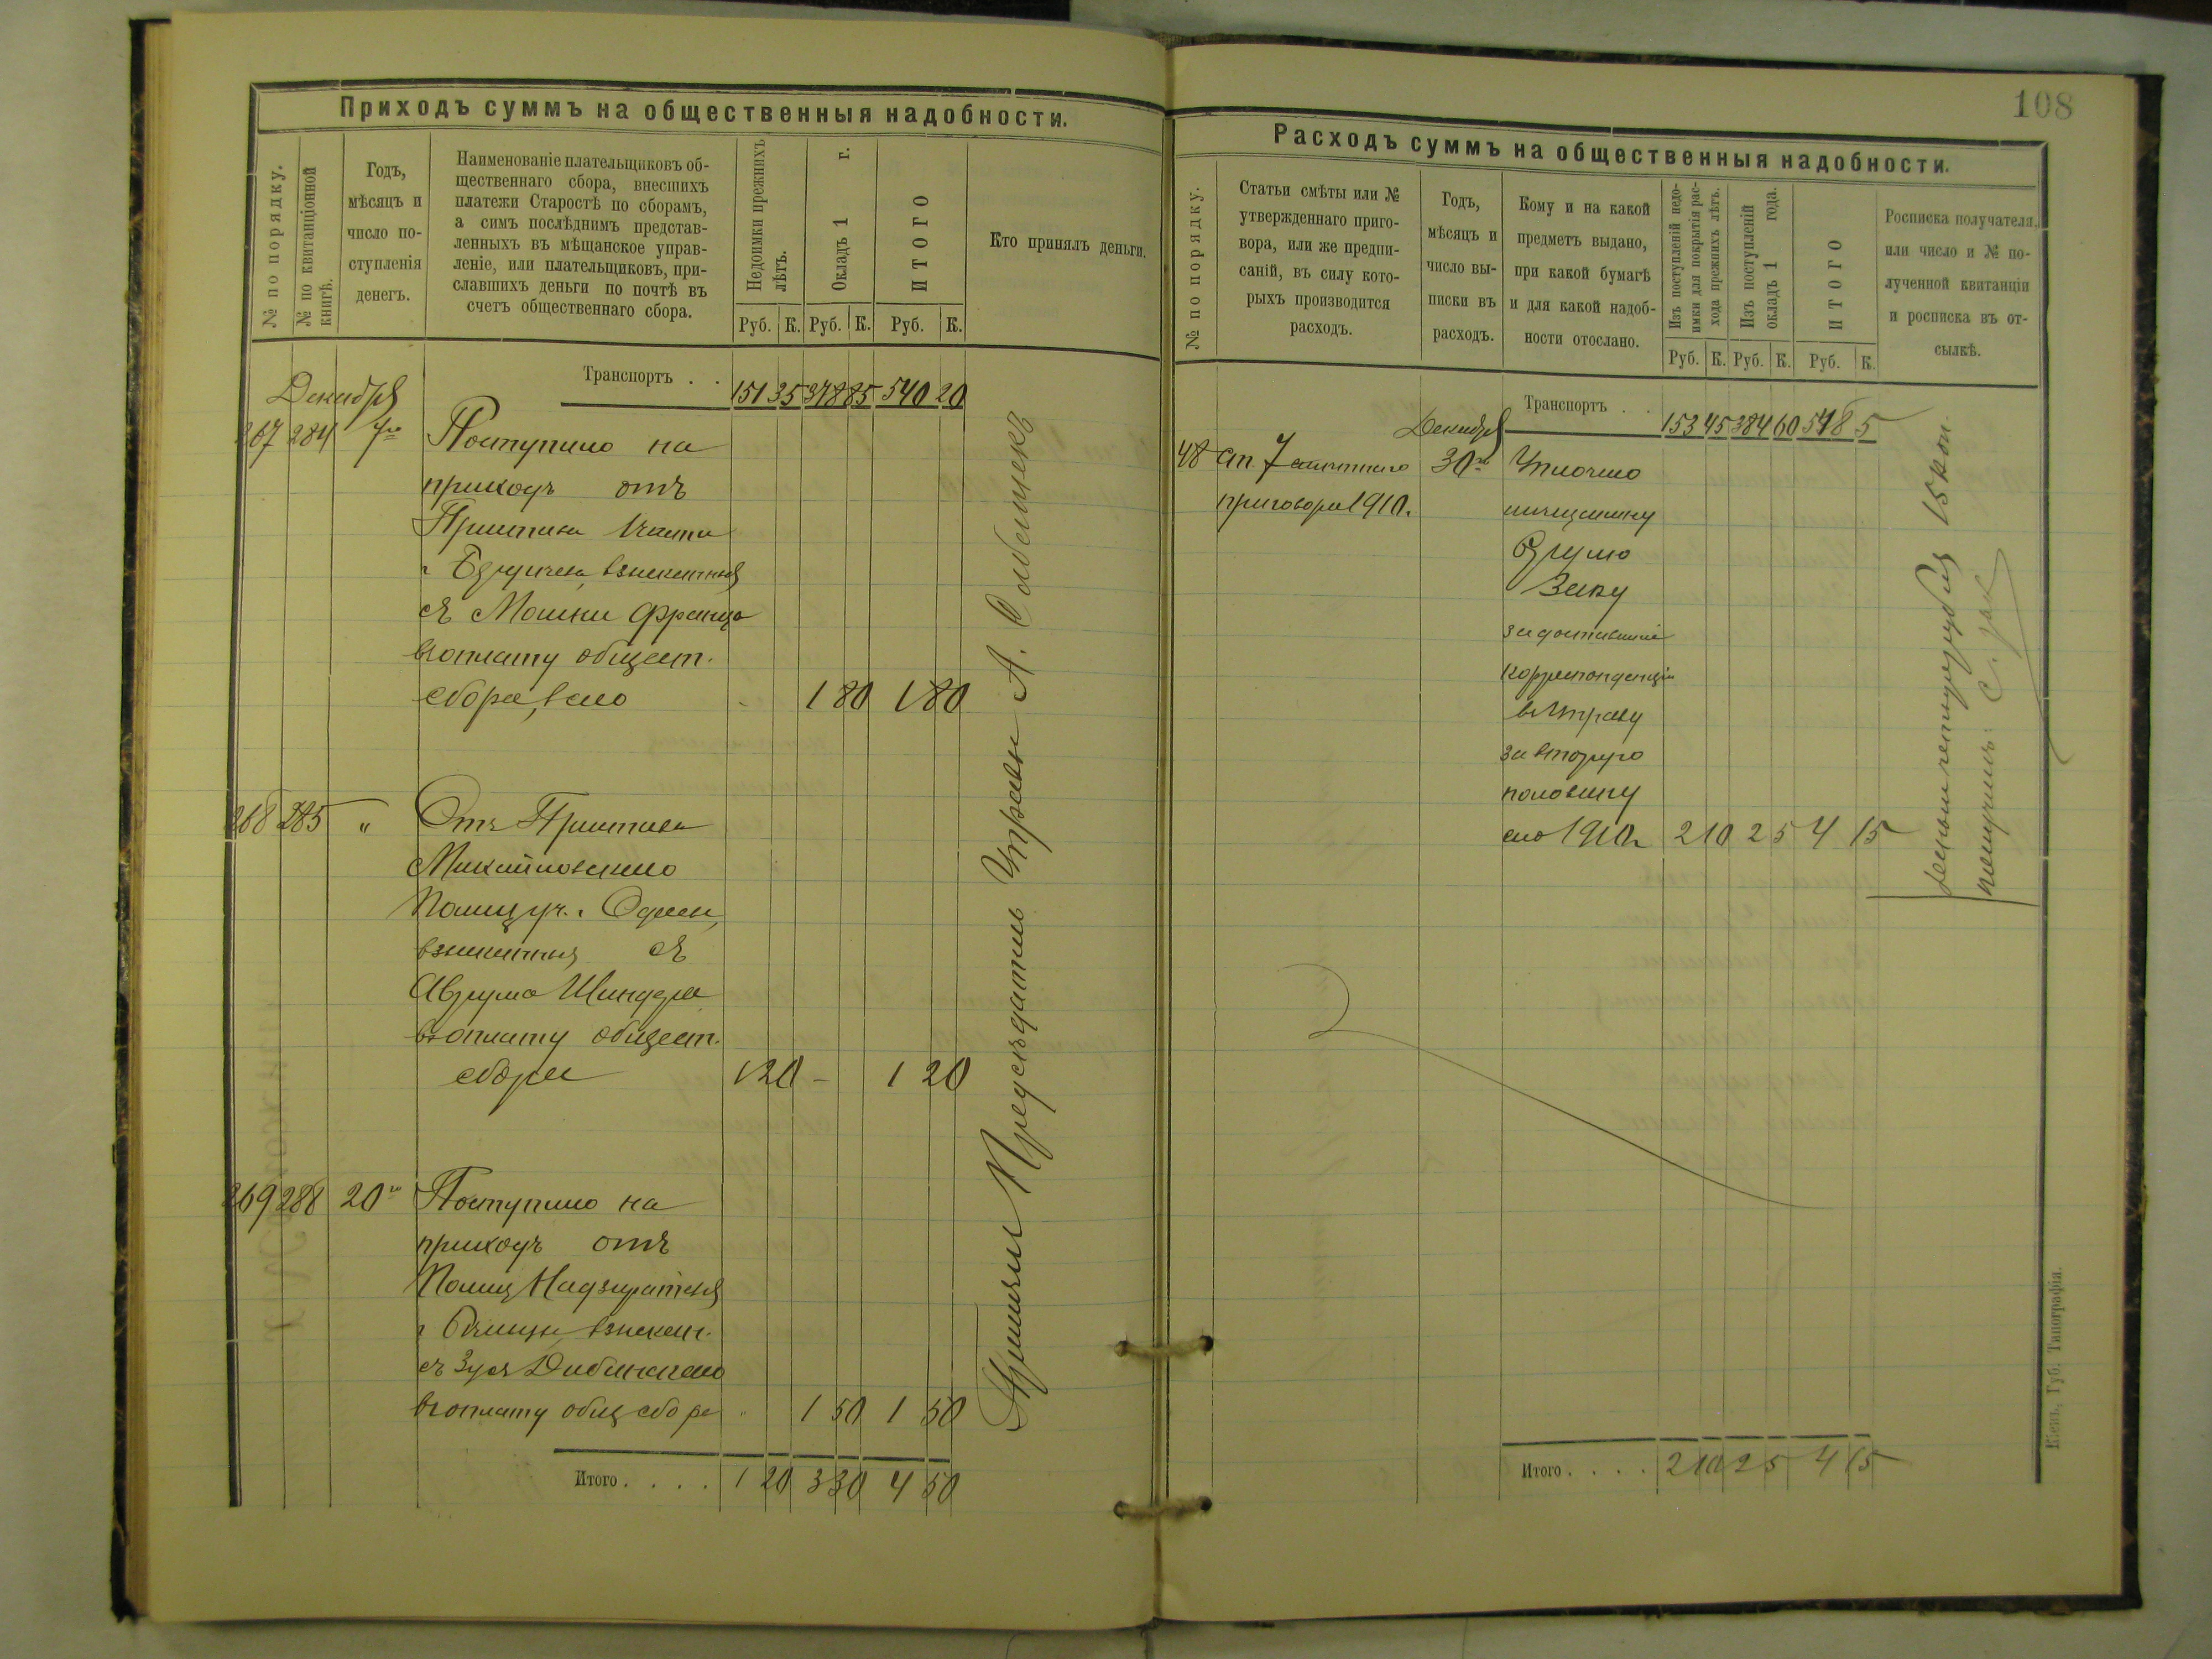 Приходъ суммъ на общественныя надобности.
№ по порядку.
№ по квитанціонной
книгѣ.
Годъ,
мѣсяцъ и
число по-
ступленія
денегъ.
Наименованіе плательщиковъ об-
щественнаго сбора, внесшихъ
платежи Старостѣ по сборамъ,
а симъ послѣднимъ представ-
ленныхъ въ мѣщанское управ-
леніе, или плательщиковъ, при-
славшихъ деньги по почтѣ въ
счетъ общественнаго сбора.
Недоимки прежнихъ
лѣтъ.
Окладъ 1 г.
ИТОГО
Руб. К. Руб. К. Руб. К.
Кто принялъ деньги.
Транспортъ . . 151 35 378 85 540 20
Декабря
267 284 7го Поступило на
приходъ отъ
Пристава 1 части
взысканныя
съ Мошки Франца
въ оплату общест.
сбора, всего - 1 80 1 80
268 285 " Отъ Пристава
Михайловскаго
Полиц уч. г. Одессы,
взысканныя съ
Аврума Шиндера
въ оплату общест.
сбора 1 20 - 1 20
269 288 20го Поступило на
приходъ отъ
Полиц Надзирателя
взыскан.
съ Зуся Дибинскаго
въ оплату общ сбора " 1 50 1 50
Итого . . . . 1 20 3 30 4 50
Принялъ Предсѣдатель Управы А.
108
Расходъ суммъ на общественныя надобности.
№ по порядку.
Статьи смѣты или №
утвержденнаго приго-
вора, или же предпи-
саній, въ силу кото-
рыхъ производится
расходъ.
Годъ,
мѣсяцъ и
число вы-
писки въ
расходъ.
Кому и на какой
предметъ выдано,
при какой бумагѣ
и для какой надоб-
ности отослано.
Изъ поступленій недо-
имки для покрытія рас-
хода прежнихъ лѣтъ.
Изъ поступленій
окладъ 1 года.
ИТОГО
Руб. К. Руб. К. Руб. К.
Росписка получателя,
или число и № по-
лученной квитанціи
и росписка въ от-
сылкѣ.
Транспортъ . . 153 45 384 60 538 5
Декабря
48 ст. 7 смѣтнаго 30го Уплочено
приговора 1910г. мѣщанину
Заку
за доставленіе
корреспонденціи
въ Управу
за вторую
половину
сего 1910г 2 10 2 5 4 15
деньги четыре рубля 15 коп.
получилъ: С. Зак
Итого . . . . 2 10 2 5 4 15
Кіевъ, Губ. Типографія.